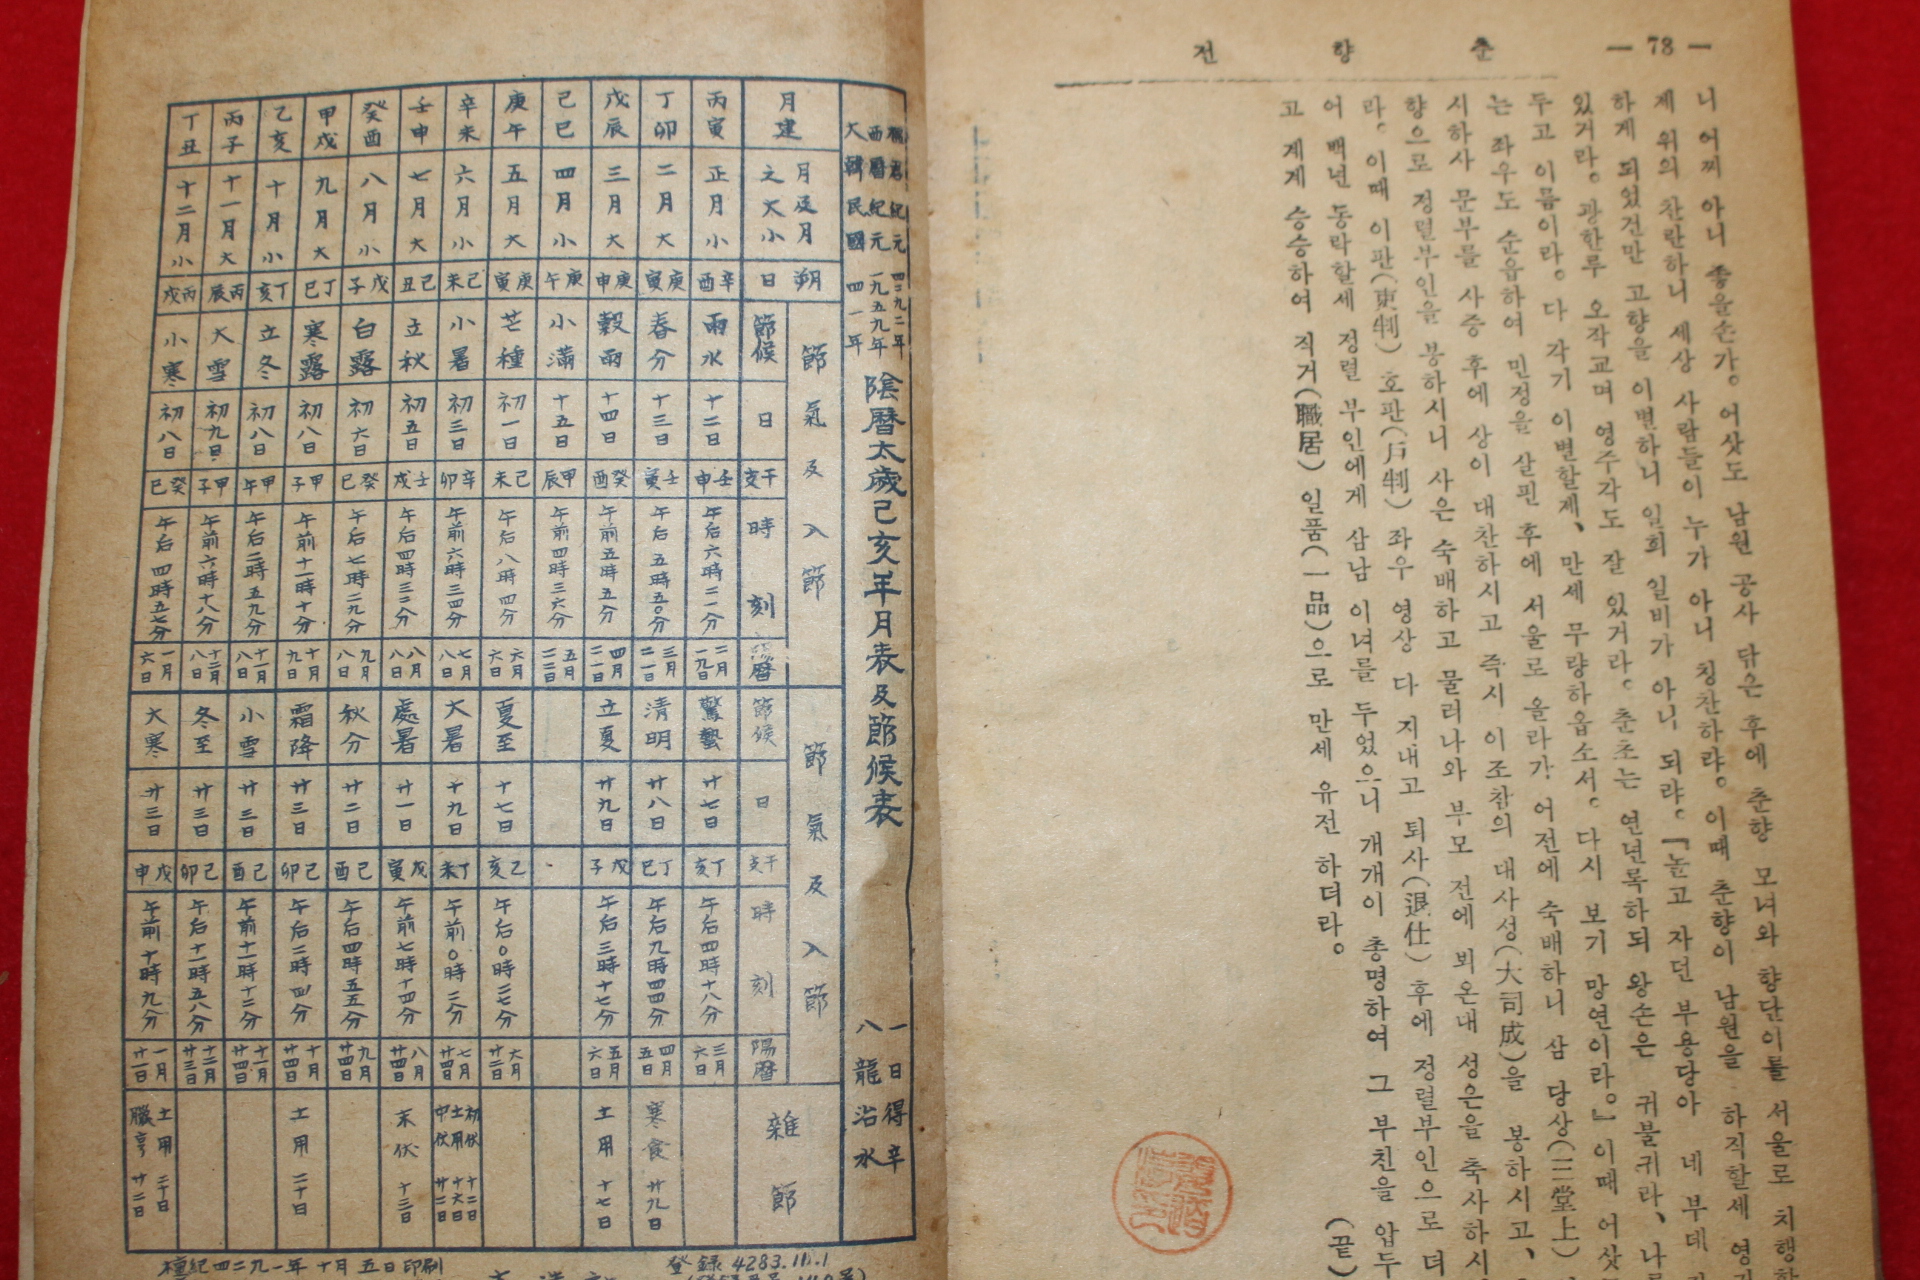 — 78 — 춘향전
니 어찌 아니 좋을손가。어삿도 남원 공사 닦은 후에 춘향 모녀와 향단이를 서울로 치행할
제 위의 찬란하니 세상 사람들이 누가 아니 칭찬하랴。이때 춘향이 남원을 하직할세
하게 되었건만 고향을 이별하니 일희 일비가 아니 되랴。『놀고 자던 부용당아 네 부데
있거라。광한루 오작교며 영주각도 잘 있거라。춘초는 연년록하되 왕손은 귀불귀라、
두고 이름이라。다 각기 이별할제、만세 무량하옵소서。다시 보기 망연이라。』이때 어삿
는 좌우도 순읍하여 민정을 살핀 후에 서울로 올라가 어전에 숙배하니 삼 당상(三堂上)
시하사 문부를 사증 후에 상이 대찬하시고 즉시 이조참의 대사성(大司成)을 봉하시고、
향으로 정렬부인을 봉하시니 사은 숙배하고 물러나와 부모 전에 뵈온대 성은을 축사하시
라。이때 이판(吏判) 호판(戶判) 좌우 영상 다 지내고 퇴사(退仕) 후에 정렬부인으로 더
어 백년 동락할세 정렬 부인에게 삼남 이녀를 두었으니 개개이 총명하여 그 부친을 압두
고 계계 승승하여 직거(職居) 일품(一品)으로 만세 유전 하더라。
(끝)
檀君紀元 四二九二年
西曆紀元 一九五九年
大韓民國 四一年
陰曆太歲己亥年月表及節候表
一日得辛
八龍治水
月建 月及月之大小 朔日 節氣及入節 節候 日 干支 時刻 陽曆 節氣及入節 節候 日 干支 時刻 陽曆 雜節
丙寅 正月小 辛酉 雨水 十二日 壬申 午后六時二一分 二月一九日 驚蟄 廿七日 丁亥 午后四時十八分 三月六日
丁卯 二月大 庚寅 春分 十三日 壬寅 午后五時五0分 三月二一日 清明 廿八日 丁巳 午后九時四四分 四月五日 寒食 廿九日
戊辰 三月大 庚申 穀雨 十四日 癸酉 午前五時五分 四月二一日 立夏 廿九日 戊子 午后三時十七分 五月六日 土用 十七日
己巳 四月小 庚午 小滿 十五日 甲辰 午前四時三六分 五月二二日
庚午 五月大 庚寅 芒種 初一日 己未 午后八時四分 六月六日 夏至 十七日 乙亥 午后0時二七分 六月廿二日
辛未 六月小 己未 小暑 初三日 辛卯 午前六時三四分 七月八日 大暑 十九日 丁未 午前0時二分 七月廿四日 初伏 十二日 土用 十六日 中伏 廿二日
壬申 七月大 己丑 立秋 初五日 壬戌 午后四時三二分 八月八日 處暑 廿一日 戊寅 午前七時十四分 八月廿四日 末伏 十三日
癸酉 八月小 戊子 白露 初六日 癸巳 午后七時二九分 九月八日 秋分 廿二日 己酉 午后四時五五分 九月廿四日
甲戌 九月大 丁巳 寒露 初八日 甲子 午前十一時十分 十月九日 霜降 廿三日 己卯 午后二時四分 十月廿四日 土用 二十日
乙亥 十月小 丁亥 立冬 初八日 甲午 午后二時五九分 十一月八日 小雪 廿三日 己酉 午前十一時十二分 十一月廿四日
丙子 十一月大 丙辰 大雪 初九日 甲子 午前六時十八分 十二月八日 冬至 廿三日 己卯 午后十一時五八分 十二月廿三日
丁丑 十二月小 丙戌 小寒 初八日 癸巳 午后四時五七分 一月六日 大寒 廿三日 戊申 午前十時九分 一月廿一日 土用 二十日 臘亨 廿二日
登錄 4283.11.1
檀紀四二九一年十月五日印刷